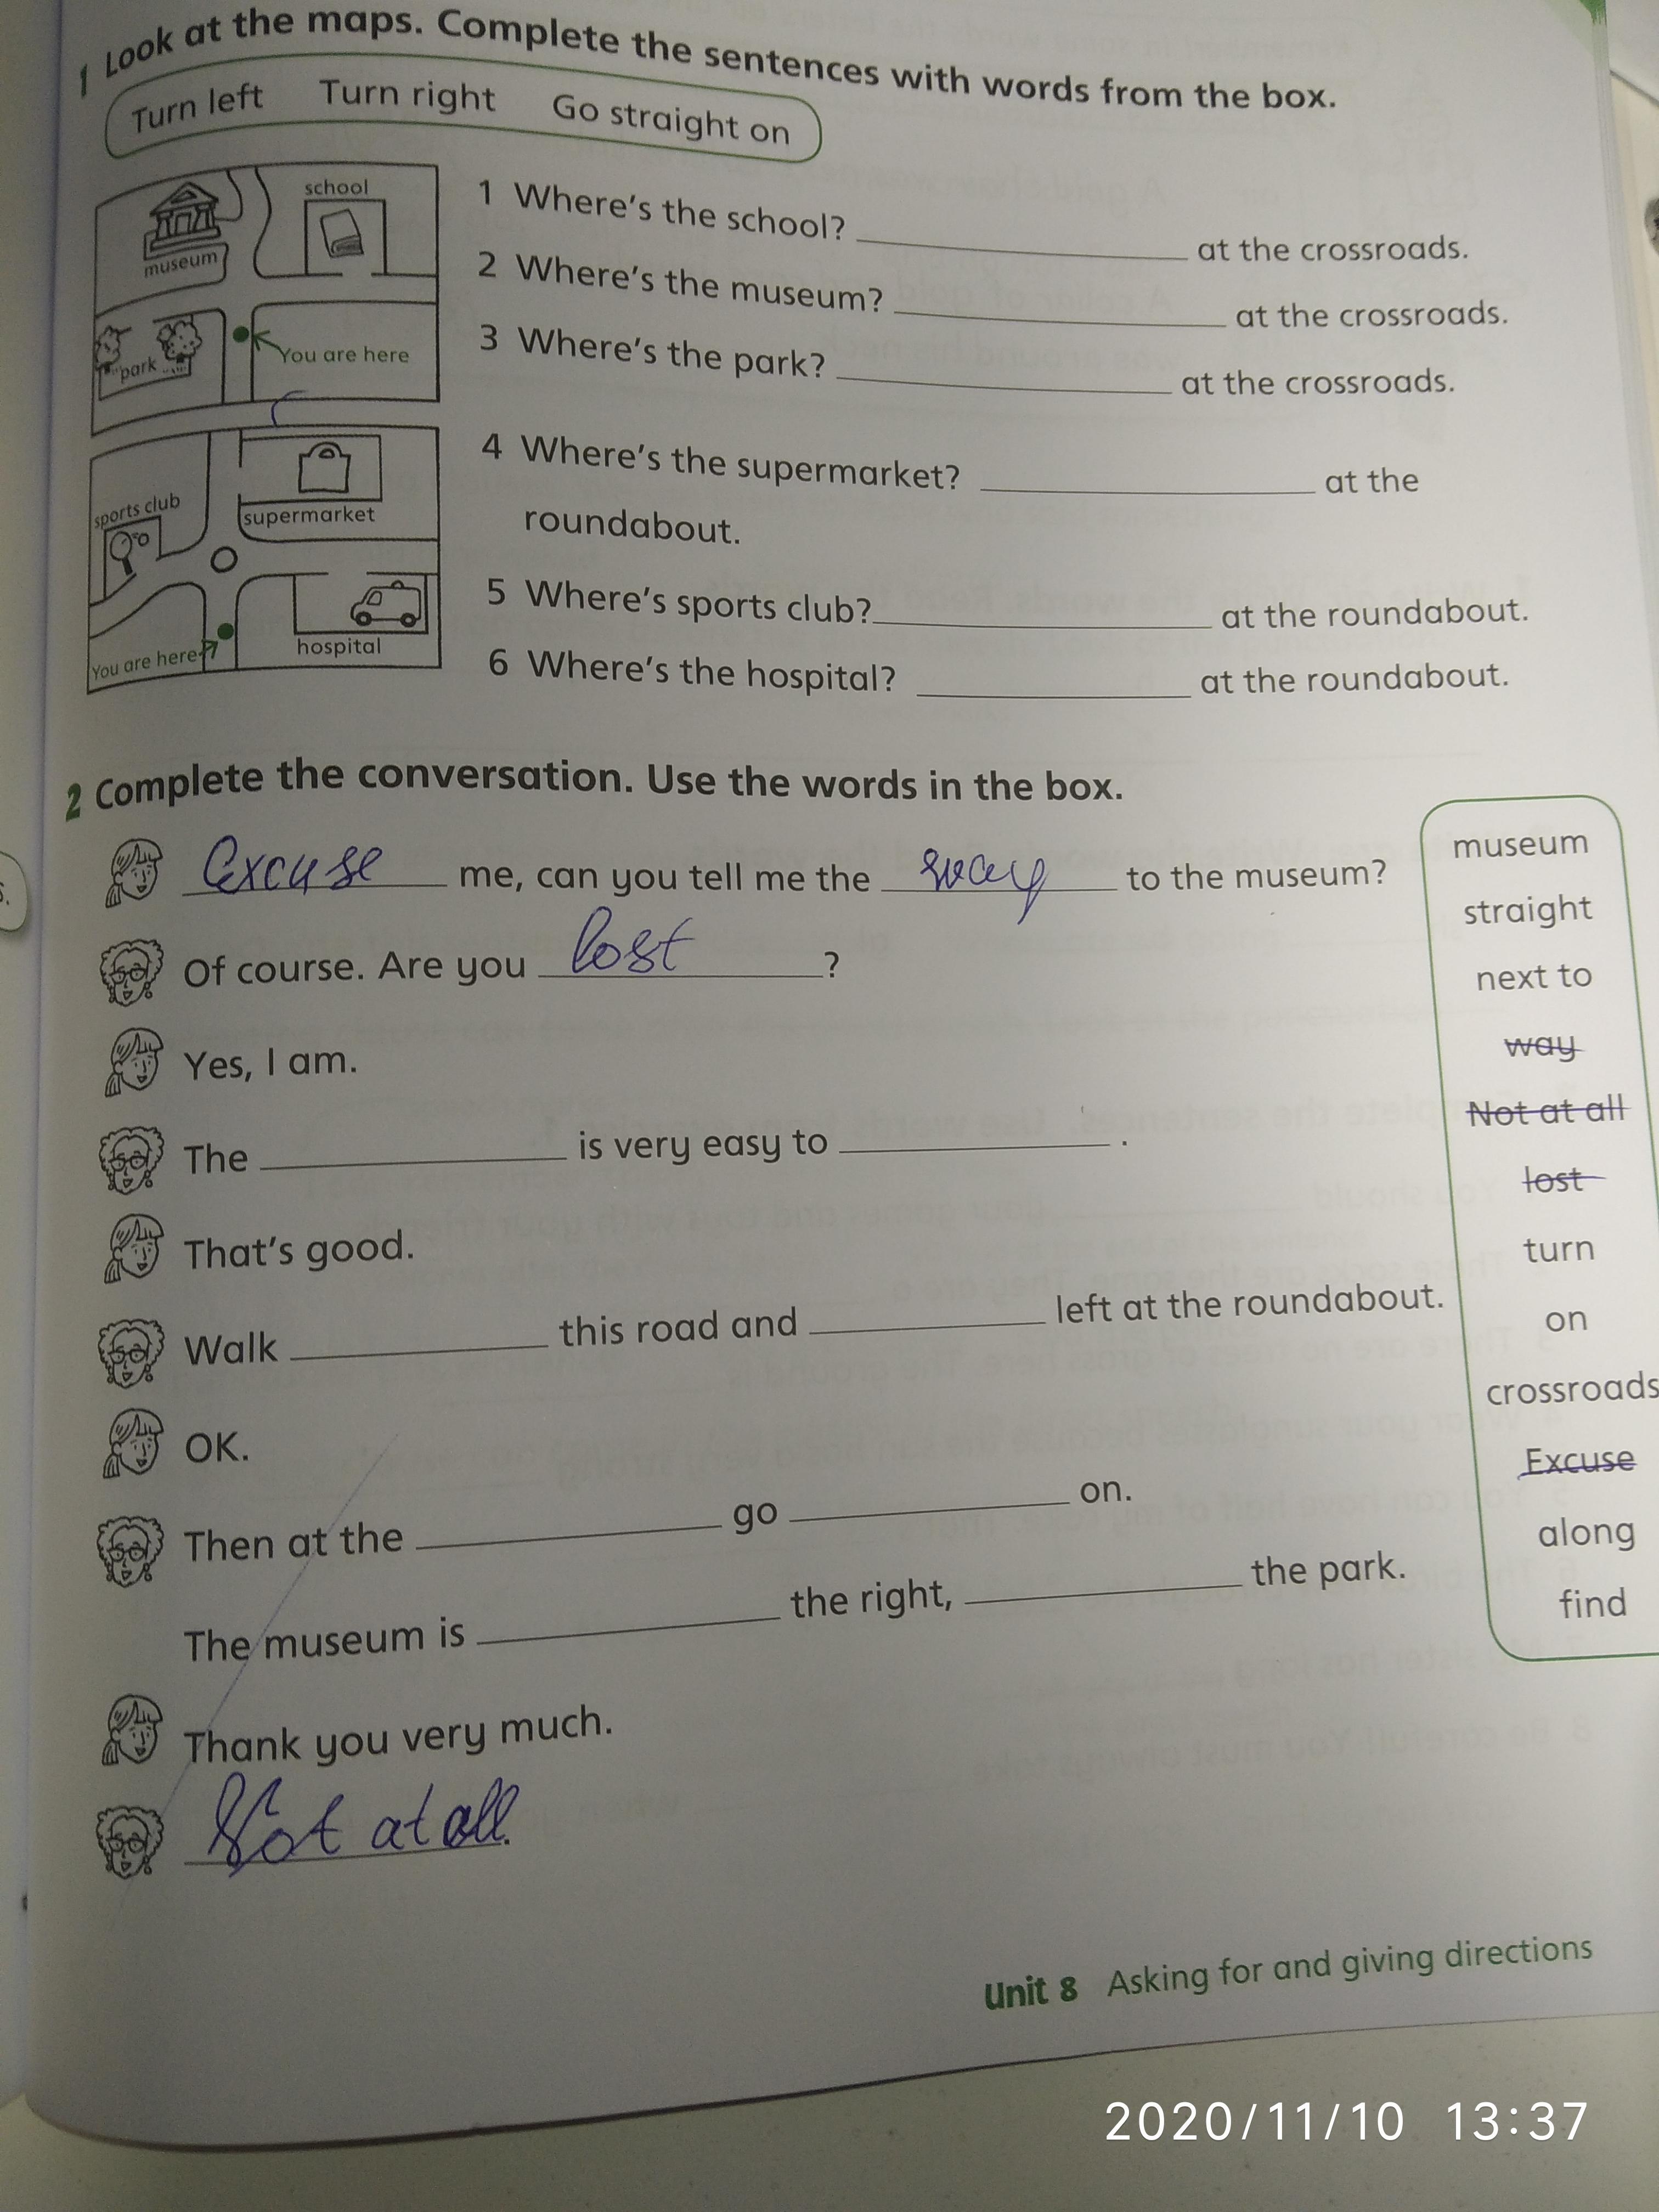 1 Look at the maps. Complete the sentences with words from the box.
Turn left Turn right Go straight on
museum
school
park
You are here
1 Where's the school? ____ at the crossroads.
2 Where's the museum? ____ at the crossroads.
3 Where's the park? ____ at the crossroads.
sports club
supermarket
hospital
You are here
4 Where's the supermarket? ____ at the
roundabout.
5 Where's sports club? ____ at the roundabout.
6 Where's the hospital? ____ at the roundabout.
2 Complete the conversation. Use the words in the box.
Excuse me, can you tell me the way to the museum?
Of course. Are you lost ?
Yes, I am.
The ____ is very easy to ____ .
That's good.
Walk ____ this road and ____ left at the roundabout.
OK.
Then at the ____ go ____ on.
The museum is ____ the right, ____ the park.
Thank you very much.
Not at all.
museum
straight
next to
way
Not at all
lost
turn
on
crossroads
Excuse
along
find
Unit 8 Asking for and giving directions
2020/11/10 13:37